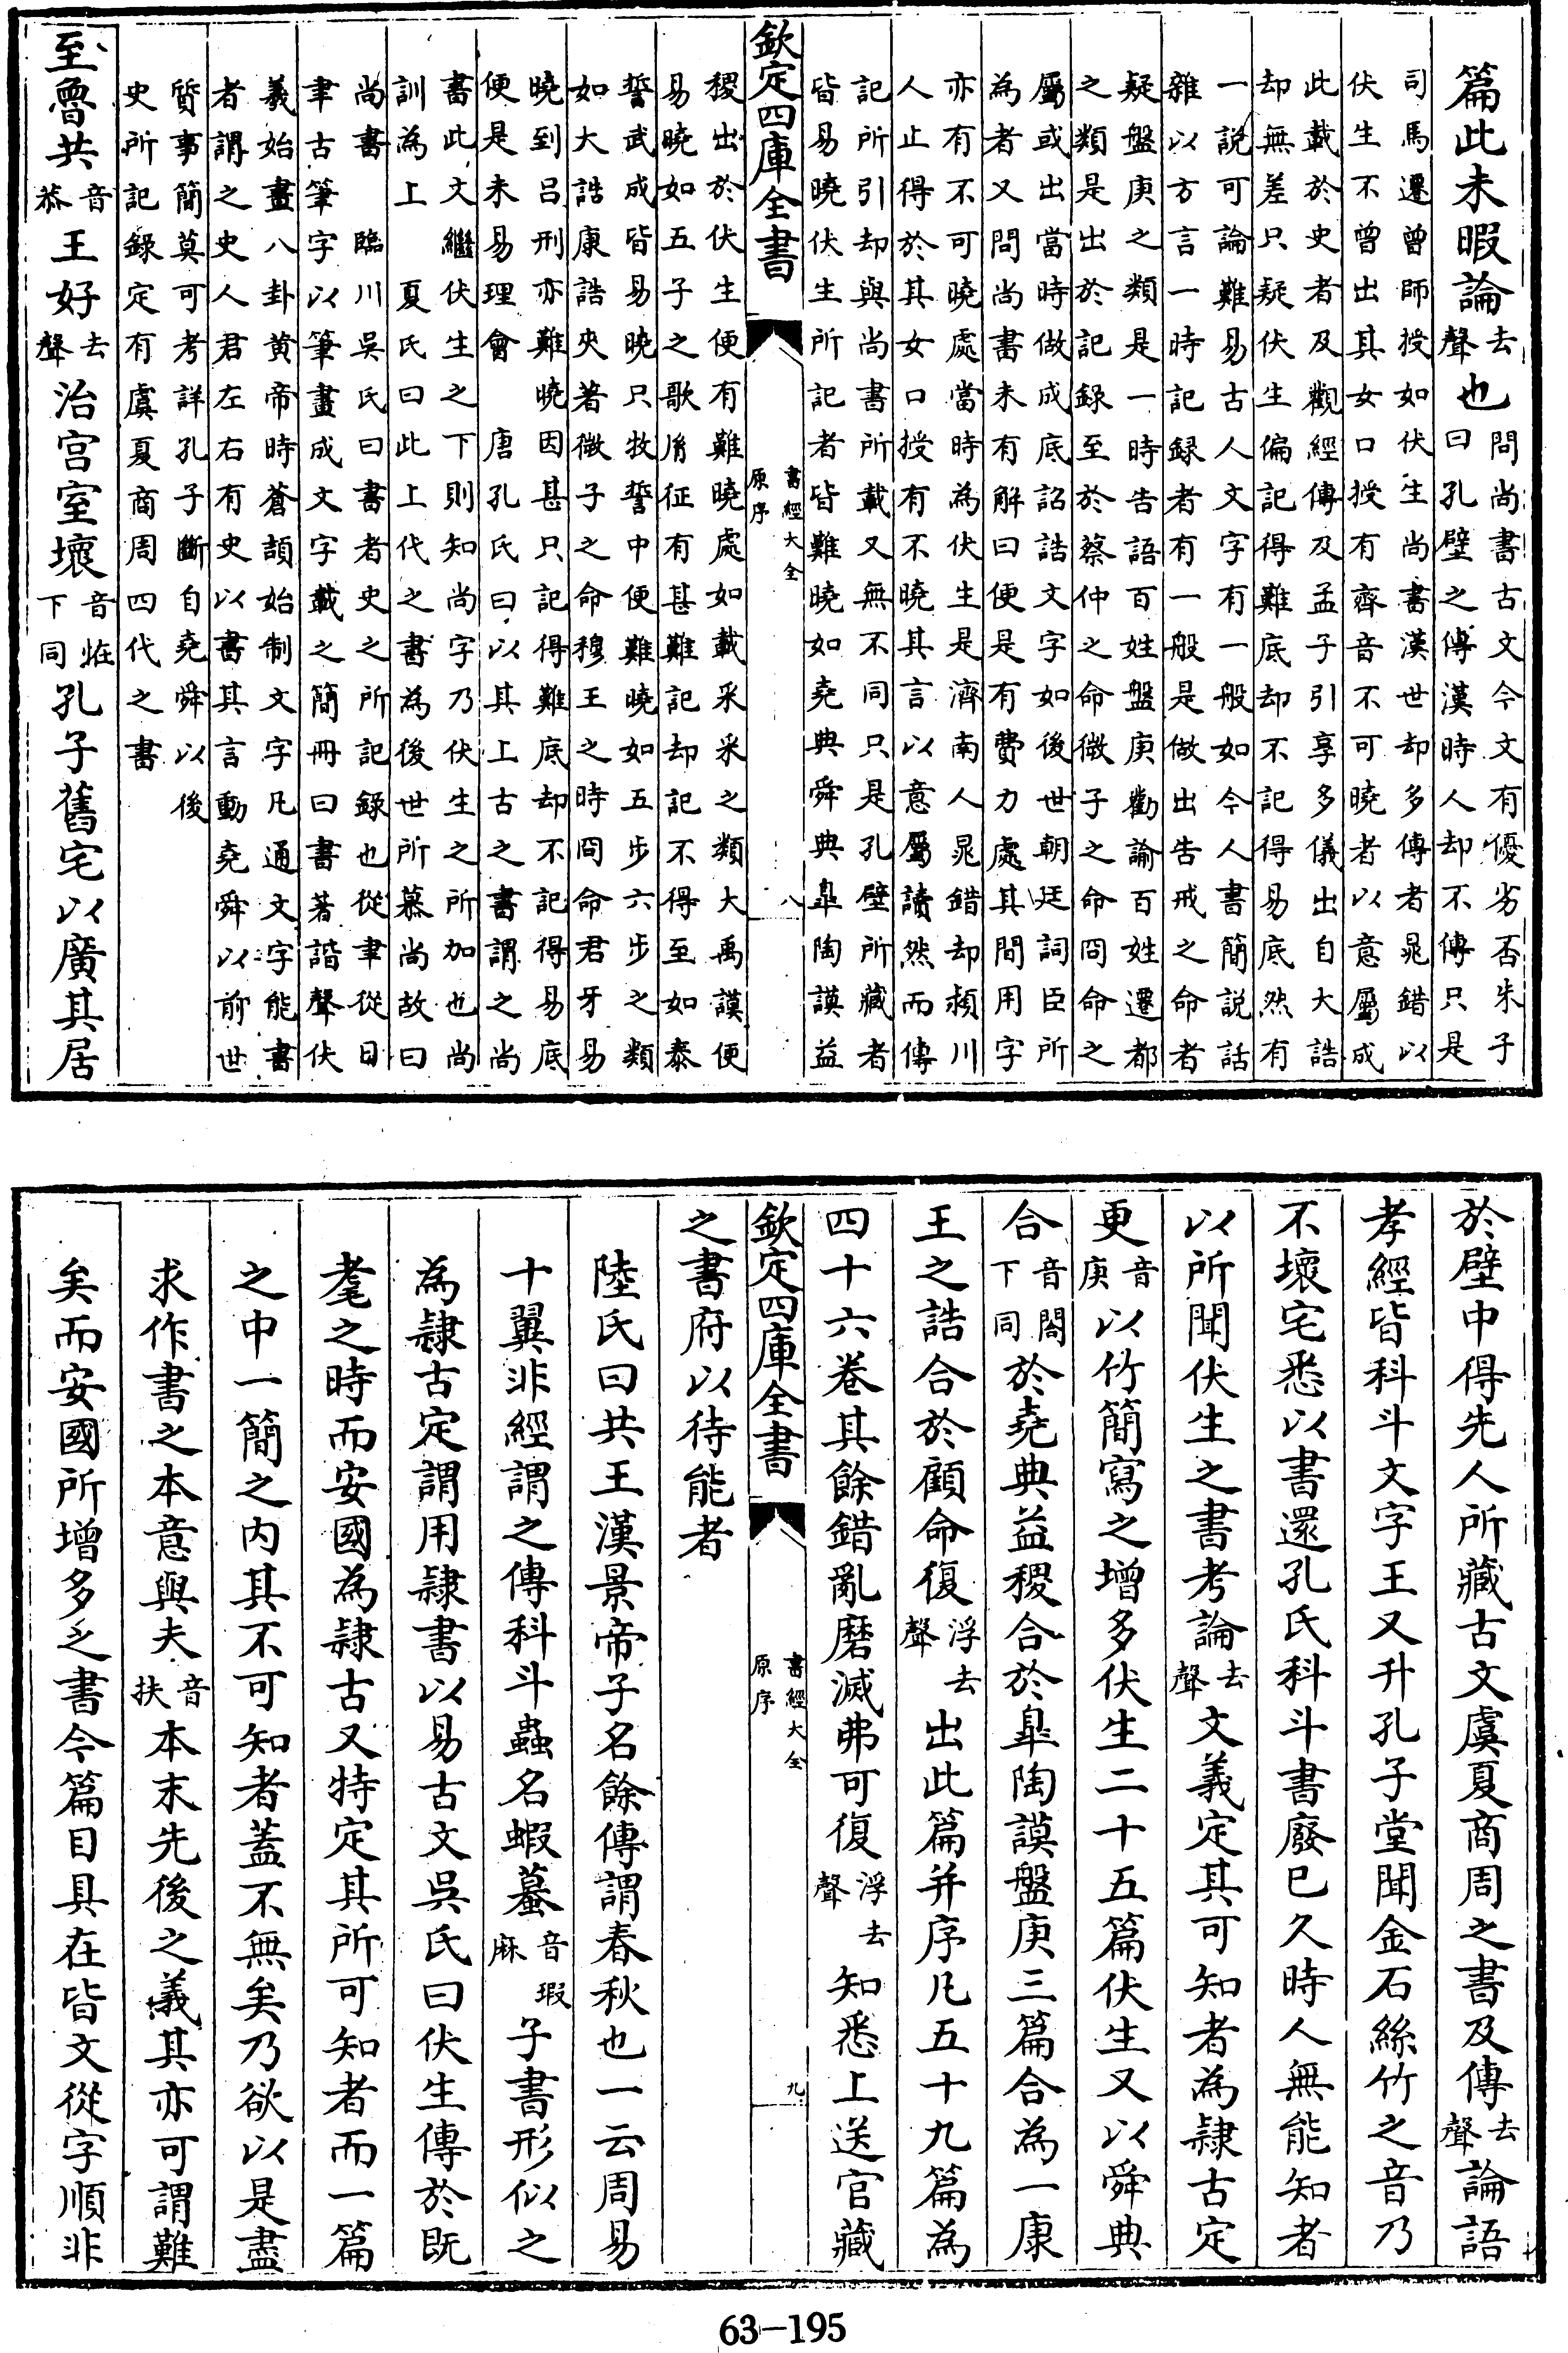 篇此未暇論去聲也問尚書古文今文有優劣否朱子
曰孔壁之傳漢時人却不傳只是
司馬遷曾師授如伏生尚書漢世却多傳者晁錯以
伏生不曾出其女口授有齊音不可曉者以意屬成
此載於史者及觀經傳及孟子引享多儀出自大誥
却無差只疑伏生偏記得難底却不記得易底然有
一說可論難易古人文字有一般如今人書簡說話
雜以方言一時記録者有一般是做出告戒之命者
疑盤庚之類是一時告語百姓盤庚勸論百姓遷都
之類是出於記録至於蔡仲之命微子之命冏命之
屬或出當時做成底詔誥文字如後世朝廷詞臣所
為者又問尚書未有解曰便是有費力處其間用字
亦有不可曉處當時為伏生是濟南人晁錯却潁川
人止得於其女口授有不曉其言以意屬讀然而傳
記所引却與尚書所載又無不同只是孔壁所藏者
皆易曉伏生所記者皆難曉如堯典舜典臯陶謨益
欽定四庫全書
書經大全
原序
八
稷出於伏生便有難曉處如載采采之類大禹謨便
易曉如五子之歌胤征有甚難記却記不得至如泰
誓武成皆易曉只牧誓中便難曉如五步六步之類
如大誥康誥夾著微子之命穆王之時冏命君牙易
曉到呂刑亦難曉因甚只記得難底却不記得易底
便是未易理會　唐孔氏曰以其上古之書謂之尚
書此文繼伏生之下則知尚字乃伏生之所加也尚
訓為上　夏氏曰此上代之書為後世所慕尚故曰
尚書　臨川吳氏曰書者史之所記録也從聿從曰
聿古筆字以筆畫成文字載之簡冊曰書著諧聲伏
羲始畫八卦黄帝時蒼頡始制文字凡通文字能書
者謂之史人君左右有史以書其言動堯舜以前世
質事簡莫可考詳孔子斷自堯舜以後
史所記録定有虞夏商周四代之書
至魯共音恭王好去聲治宫室壞音恠下同孔子舊宅以廣其居
於壁中得先人所藏古文虞夏商周之書及傳去聲論語
孝經皆科斗文字王又升孔子堂聞金石絲竹之音乃
不壞宅悉以書還孔氏科斗書廢已久時人無能知者
以所聞伏生之書考論去聲文義定其可知者為隷古定
更音庚以竹簡寫之增多伏生二十五篇伏生又以舜典
合音閤下同於堯典益稷合於臯陶謨盤庚三篇合為一康
王之誥合於顧命復浮去聲出此篇并序凡五十九篇為
四十六卷其餘錯亂磨滅弗可復浮去聲知悉上送官藏
欽定四庫全書
書經大全
原序
九
之書府以待能者
陸氏曰共王漢景帝子名餘傳謂春秋也一云周易
十翼非經謂之傳科斗蟲名蝦蟇音瑕麻子書形似之
為隷古定謂用隷書以易古文吳氏曰伏生傳於既
耄之時而安國為隷古又特定其所可知者而一篇
之中一簡之内其不可知者蓋不無矣乃欲以是盡
求作書之本意與夫音扶本末先後之義其亦可謂難
矣而安國所增多之書今篇目具在皆文從字順非
63—195